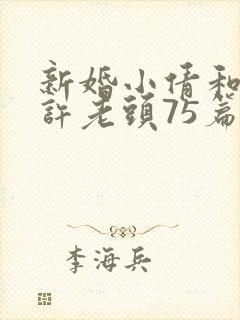 新婚小倩和
許老頭75篇
李海兵